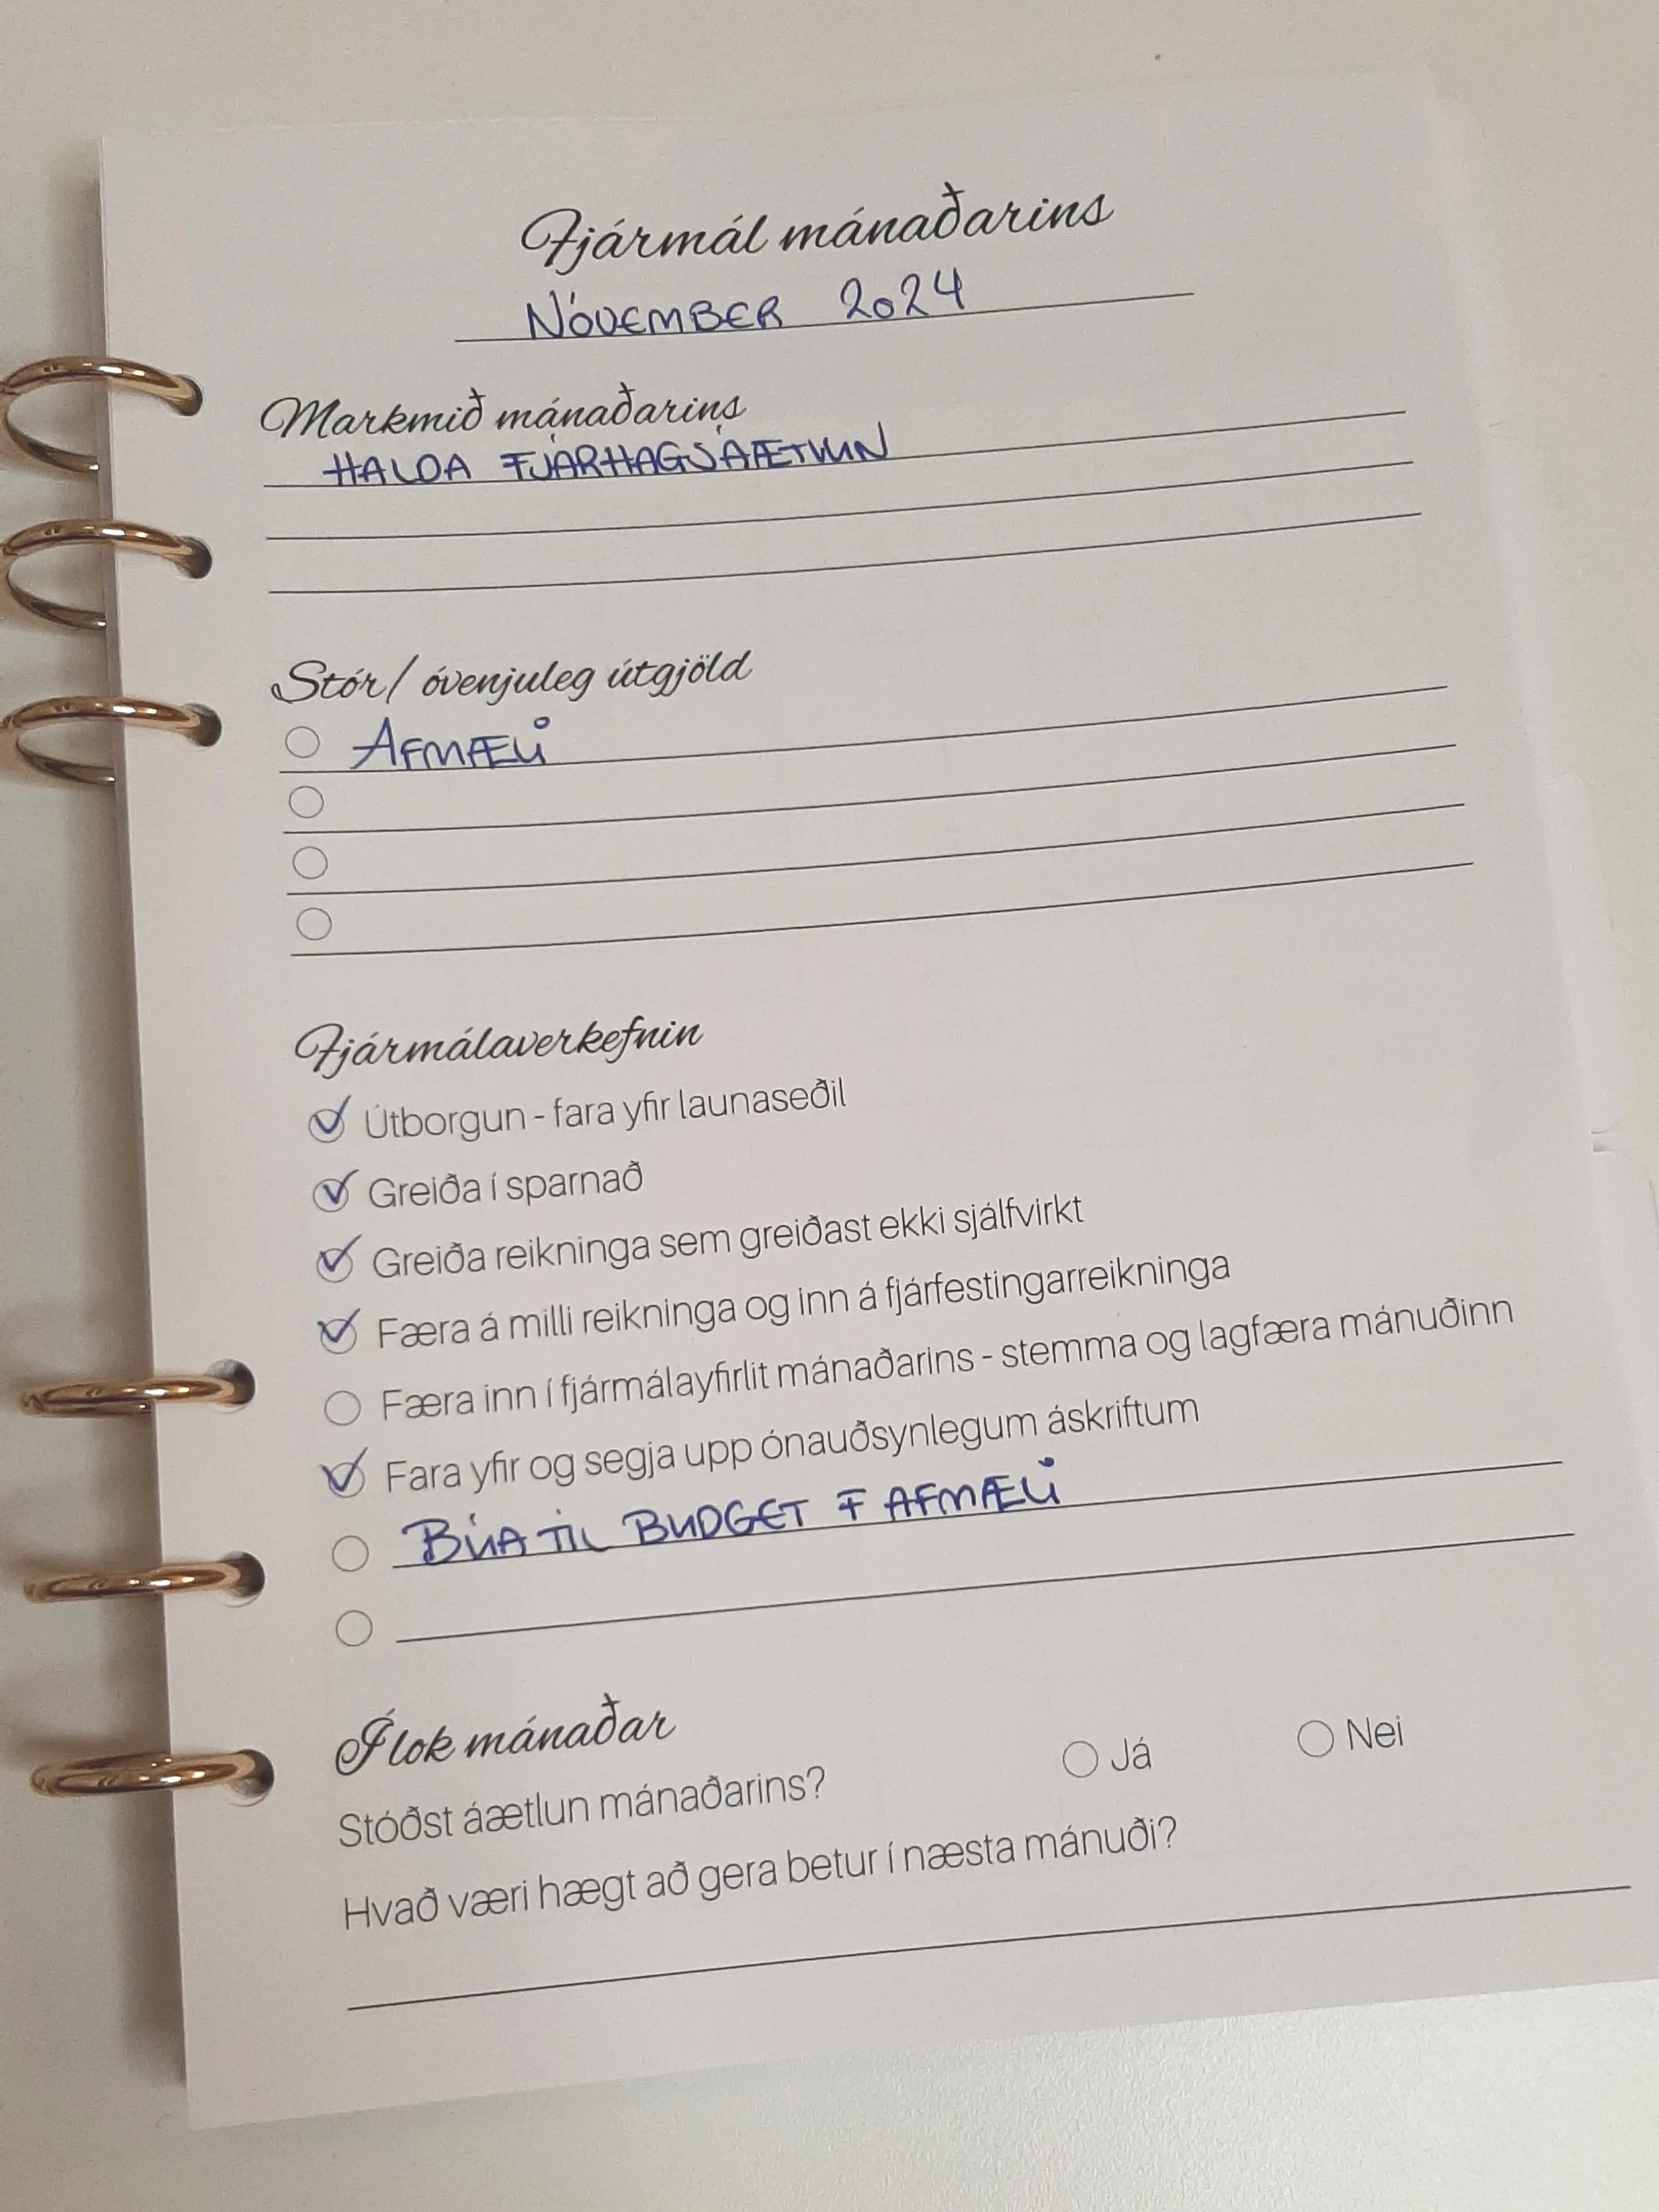 Fjármál mánaðarins
NÓVEMBER 2024
Markmið mánaðarins
HALDA FJÁRHAGSÁÆTLUN
Stór/ óvenjuleg útgjöld
AFMÆLI
Fjármálaverkefnin
Útborgun - fara yfir launaseðil
Greiða í sparnað
Greiða reikninga sem greiðast ekki sjálfvirkt
Færa á milli reikninga og inn á fjárfestingarreikninga
Færa inn í fjármálayfirlit mánaðarins - stemma og lagfæra mánuðinn
Fara yfir og segja upp ónauðsynlegum áskriftum
BÚA TIL BUDGET F AFMÆLI
Í lok mánaðar
Stóðst áætlun mánaðarins? Já Nei
Hvað væri hægt að gera betur í næsta mánuði?